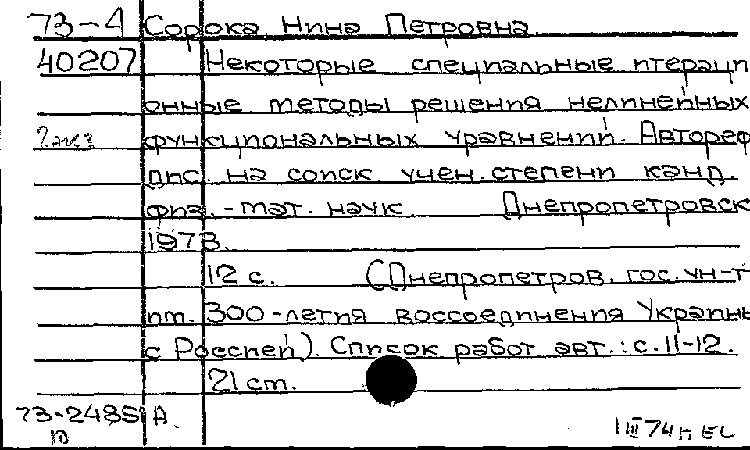 73-4 Сорока Нина Петровна
40207 Некоторые специальные итераци
онные методы решения нелинейных
2экз функциональных уравнений. Автореф
дис. на соиск учен. степени канд.
физ.-мат. наук Днепропетровск
1973.
12 с. (Днепропетров. гос. ун-т
им. 300-летия воссоединения Украины
с Россией). Список работ авт.: с. 11-12.
21 cm.
73-2485 А
1 III 74